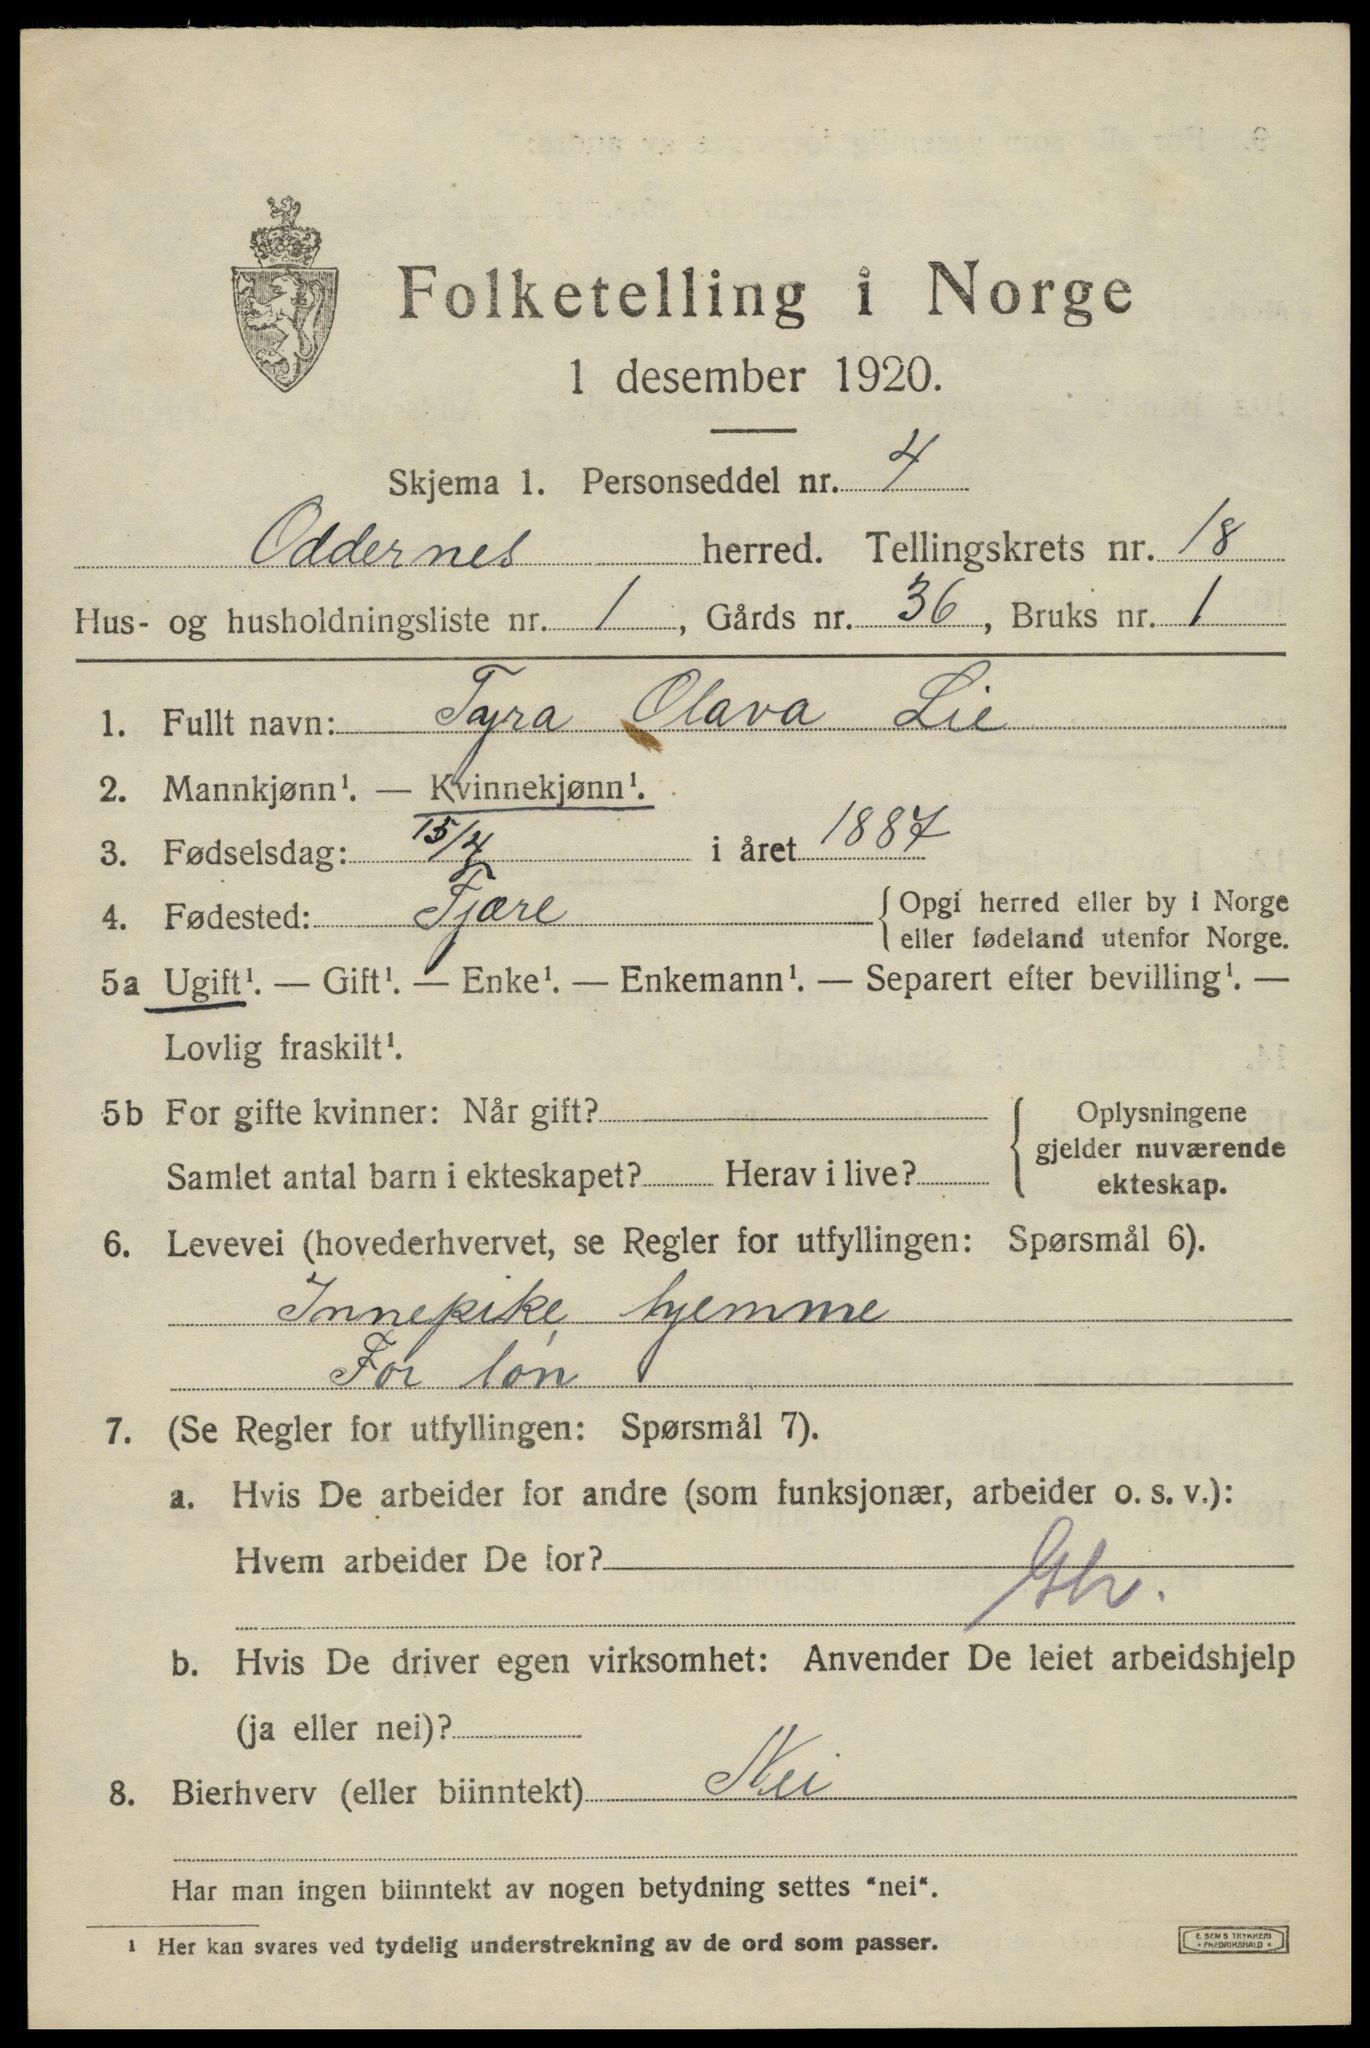 Folketelling i Norge
1 desember 1920.
Skjema 1. Personseddel nr. 4
Oddernes herred. Tellingskrets nr. 18
Hus- og husholdningsliste nr. 1, Gårds nr. 36, Bruks nr. 1
1. Fullt navn: Tyra Olava Lie
2. Mannkjønn¹. — Kvinnekjønn¹.
3. Fødselsdag: 15/4 i året 1887
4. Fødested: Fjære { Opgi herred eller by i Norge
eller fødeland utenfor Norge.
5a Ugift¹. — Gift¹. — Enke¹. — Enkemann¹. — Separert efter bevilling¹. —
Lovlig fraskilt¹.
5b For gifte kvinner: Når gift?
Samlet antal barn i ekteskapet? Herav i live?
Oplysningene
gjelder nuværende
ekteskap.
6. Levevei (hovederhvervet, se Regler for utfyllingen: Spørsmål 6).
Innepike hjemme
For løn
7. (Se Regler for utfyllingen: Spørsmål 7).
a. Hvis De arbeider for andre (som funksjonær, arbeider o. s. v.):
Hvem arbeider De for?
b. Hvis De driver egen virksomhet: Anvender De leiet arbeidshjelp
(ja eller nei)?
8. Bierhverv (eller biinntekt) Nei
Har man ingen biinntekt av nogen betydning settes "nei".
¹ Her kan svares ved tydelig understrekning av de ord som passer.
E. SEM'S TRYKKERI
FREDRIKSHALD